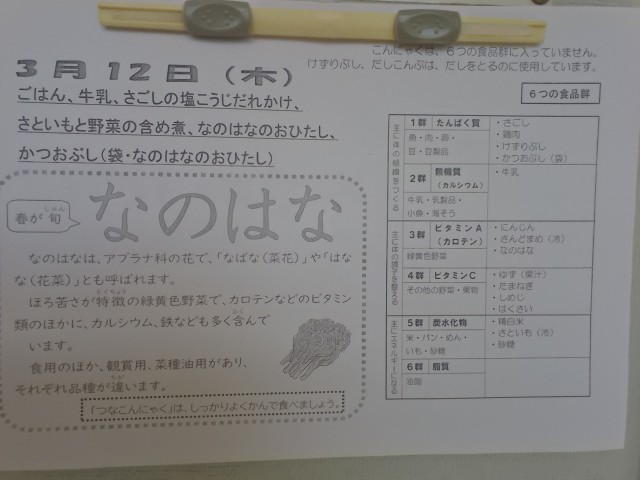 こんにゃくは、６つの食品群に入っていません。
けずりぶし、だしこんぶは、だしをとるのに使用しています。
３月１２日（木）
ごはん、牛乳、さごしの塩こうじだれかけ、
さといもと野菜の含め煮、なのはなのおひたし、
かつおぶし（袋・なのはなのおひたし）
春が旬
しゅん
なのはな
なのはなは、アブラナ科の花で、「なばな（菜花）」や「はな
な（花菜）」とも呼ばれます。
とくちょう
ほろ苦さが特徴の緑黄色野菜で、カロテンなどのビタミン
類のほかに、カルシウム、鉄なども多く含んで
ふく
います。
食用のほか、観賞用、菜種油用があり、
それぞれ品種が違います。
ちが
「つなこんにゃく」は、しっかりよくかんで食べましょう。
６つの食品群
主に体の組織をつくる
１群 たんぱく質
魚・肉・卵・
豆・豆製品
・さごし
・鶏肉
・けずりぶし
・かつおぶし（袋）
２群 無機質（カルシウム）
牛乳・乳製品・
小魚・海そう
・牛乳
主に体の調子を整える
３群 ビタミンＡ（カロテン）
緑黄色野菜
・にんじん
・さんどまめ（冷）
・なのはな
４群 ビタミンＣ
その他の野菜・果物
・ゆず（果汁）
・たまねぎ
・しめじ
・はくさい
主にエネルギーになる
５群 炭水化物
米・パン・めん・
いも・砂糖
・精白米
・さといも（冷）
・砂糖
６群 脂質
油脂